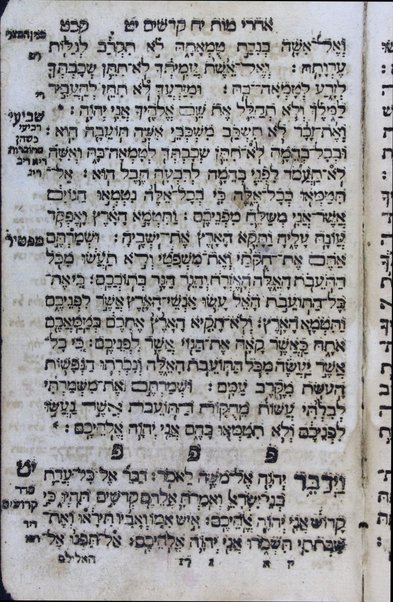 אחרי מות יח קדשים יט קכט
וְאֶל־אִשָּׁה בְּנִדַּת טֻמְאָתָהּ לֹא תִקְרַב לְגַלּוֹת
עֶרְוָתָהּ׃ וְאֶל־אֵשֶׁת עֲמִיתְךָ לֹא־תִתֵּן שְׁכָבְתְּךָ
לְזָרַע לְטָמְאָה־בָהּ׃ וּמִזַּרְעֲךָ לֹא־תִתֵּן לְהַעֲבִיר
לַמֹּלֶךְ וְלֹא תְחַלֵּל אֶת־שֵׁם אֱלֹהֶיךָ אֲנִי יְהוָה׃
שביעי
רביעי
כשהן
מחוברות
וְאֶת־זָכָר לֹא תִשְׁכַּב מִשְׁכְּבֵי אִשָּׁה תּוֹעֵבָה הִוא׃
וּבְכָל־בְּהֵמָה לֹא־תִתֵּן שְׁכָבְתְּךָ לְטָמְאָה־בָהּ וְאִשָּׁה
לֹא־תַעֲמֹד לִפְנֵי בְהֵמָה לְרִבְעָהּ תֶּבֶל הוּא׃ אַל־
תִּטַּמְּאוּ בְּכָל־אֵלֶּה כִּי בְכָל־אֵלֶּה נִטְמְאוּ הַגּוֹיִם
אֲשֶׁר־אֲנִי מְשַׁלֵּחַ מִפְּנֵיכֶם׃ וַתִּטְמָא הָאָרֶץ וָאֶפְקֹד
עֲוֹנָהּ עָלֶיהָ וַתָּקִא הָאָרֶץ אֶת־יֹשְׁבֶיהָ׃ וּשְׁמַרְתֶּם
מפטיר
אַתֶּם אֶת־חֻקֹּתַי וְאֶת־מִשְׁפָּטַי וְלֹא תַעֲשׂוּ מִכֹּל
הַתּוֹעֵבֹת הָאֵלֶּה הָאֶזְרָח וְהַגֵּר הַגָּר בְּתוֹכְכֶם׃ כִּי אֶת־
כָּל־הַתּוֹעֵבֹת הָאֵל עָשׂוּ אַנְשֵׁי־הָאָרֶץ אֲשֶׁר לִפְנֵיכֶם
וַתִּטְמָא הָאָרֶץ׃ וְלֹא־תָקִיא הָאָרֶץ אֶתְכֶם בְּטַמַּאֲכֶם
אֹתָהּ כַּאֲשֶׁר קָאָה אֶת־הַגּוֹי אֲשֶׁר לִפְנֵיכֶם׃ כִּי כָּל־
אֲשֶׁר יַעֲשֶׂה מִכֹּל הַתּוֹעֵבֹת הָאֵלֶּה וְנִכְרְתוּ הַנְּפָשׁוֹת
הָעֹשֹׂת מִקֶּרֶב עַמָּם׃ וּשְׁמַרְתֶּם אֶת־מִשְׁמַרְתִּי
לְבִלְתִּי עֲשׂוֹת מֵחֻקּוֹת הַתּוֹעֵבֹת אֲשֶׁר נַעֲשׂוּ
לִפְנֵיכֶם וְלֹא תִטַּמְּאוּ בָּהֶם אֲנִי יְהוָה אֱלֹהֵיכֶם׃
פ פ פ
יט
סדר
קדושים
וַיְדַבֵּר יְהוָה אֶל־מֹשֶׁה לֵּאמֹר׃ דַּבֵּר אֶל־כָּל־עֲדַת
בְּנֵי־יִשְׂרָאֵל וְאָמַרְתָּ אֲלֵהֶם קְדֹשִׁים תִּהְיוּ כִּי
קָדוֹשׁ אֲנִי יְהוָה אֱלֹהֵיכֶם׃ אִישׁ אִמּוֹ וְאָבִיו תִּירָאוּ וְאֶת־
שַׁבְּתֹתַי תִּשְׁמֹרוּ אֲנִי יְהוָה אֱלֹהֵיכֶם׃ אַל־תִּפְנוּ אֶל־
האלילם